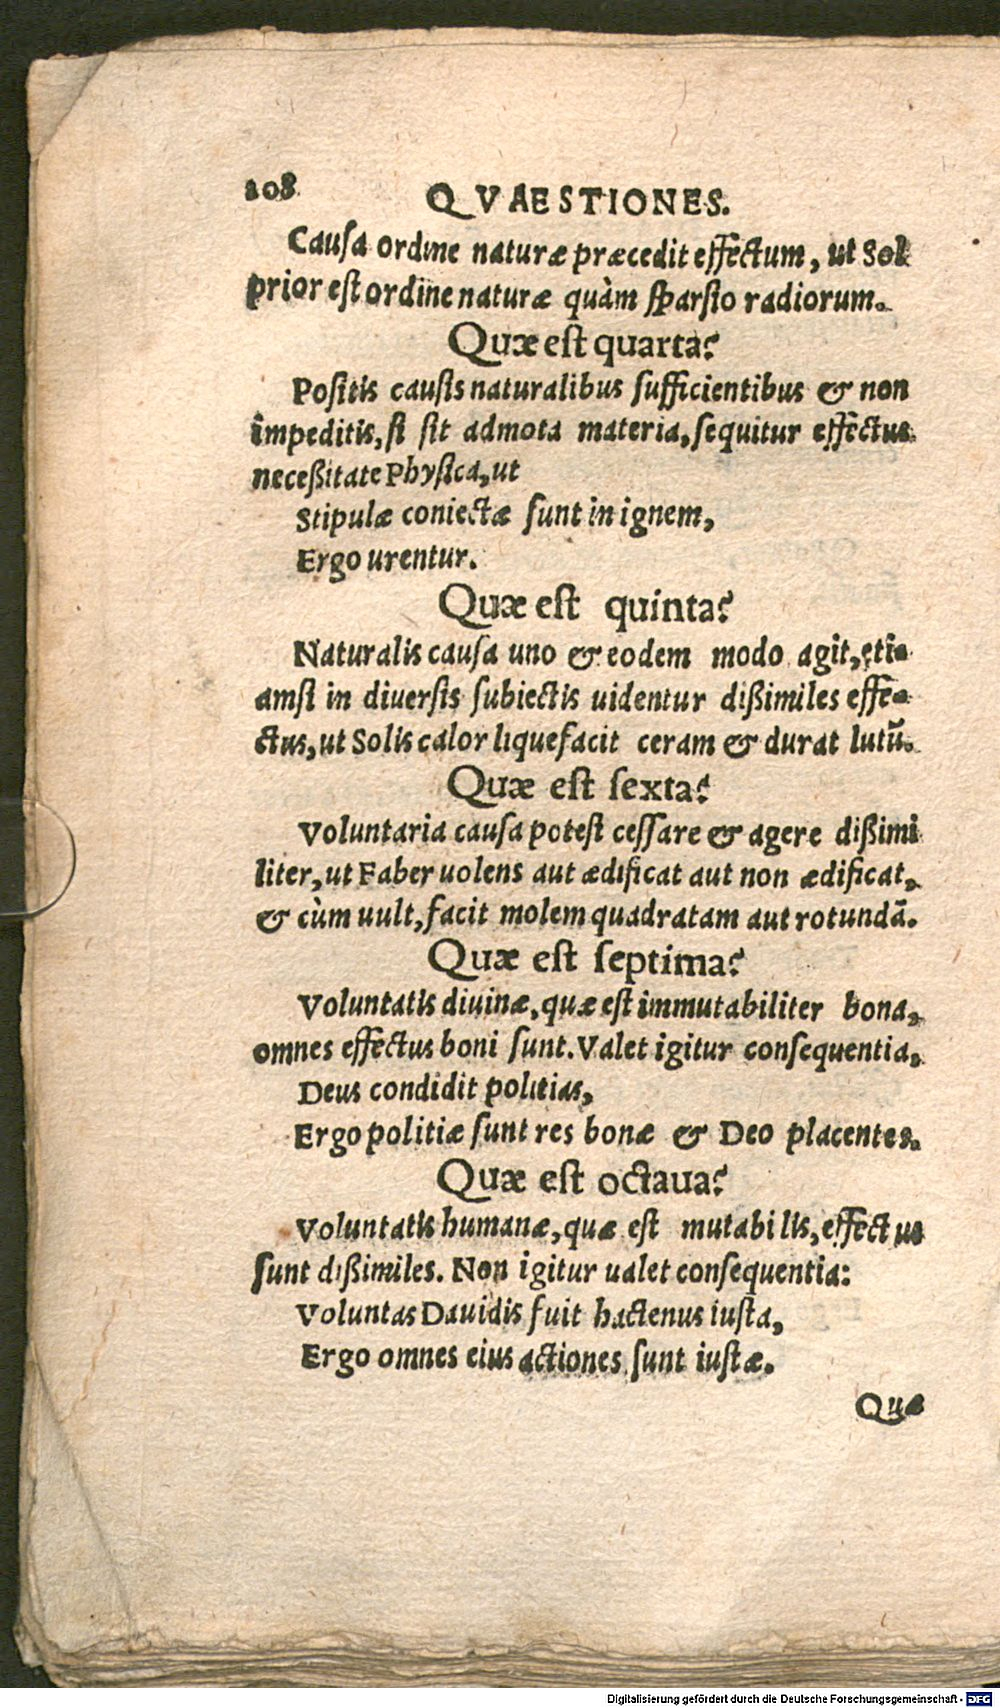 108 QVAESTIONES.
Causa ordine naturæ præcedit effectum, ut Sol
prior est ordine naturæ quàm sparsio radiorum.
Quæ est quarta?
Positis causis naturalibus sufficientibus & non
impeditis, si sit admota materia, sequitur effectus
neceßitate Physica, ut
Stipulæ coniectæ sunt in ignem,
Ergo urentur.
Quæ est quinta?
Naturalis causa uno & eodem modo agit, eti-
amsi in diversis subiectis uidentur dißimiles effe-
ctus, ut Solis calor liquefacit ceram & durat lutũ.
Quæ est sexta?
Voluntaria causa potest cessare & agere dißimi
liter, ut Faber uolens aut ædificat aut non ædificat,
& cùm uult, facit molem quadratam aut rotundã.
Quæ est septima?
Voluntatis diuinæ, quæ est immutabiliter bona,
omnes effectus boni sunt. Valet igitur consequentia,
Deus condidit politias,
Ergo politiæ sunt res bonæ & Deo placentes.
Quæ est octaua?
Voluntatis humanæ, quæ est mutabilis, effectus
sunt dißimiles. Non igitur ualet consequentia:
Voluntas Dauidis fuit hactenus iusta,
Ergo omnes eius actiones sunt iustæ.
Quæ
Digitalisierung gefördert durch die Deutsche Forschungsgemeinschaft - DFG